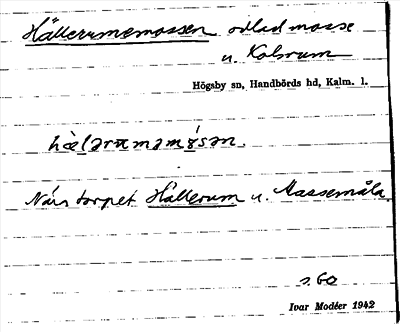 Hällerumemossen odlad mosse
u. Kalvrum
Högsby sn, Handbörds hd, Kalm. l.
hὲlərɷməmósən.
När torpet Hällerum u. Massemåla.
s. 60
Ivar Modéer 1942